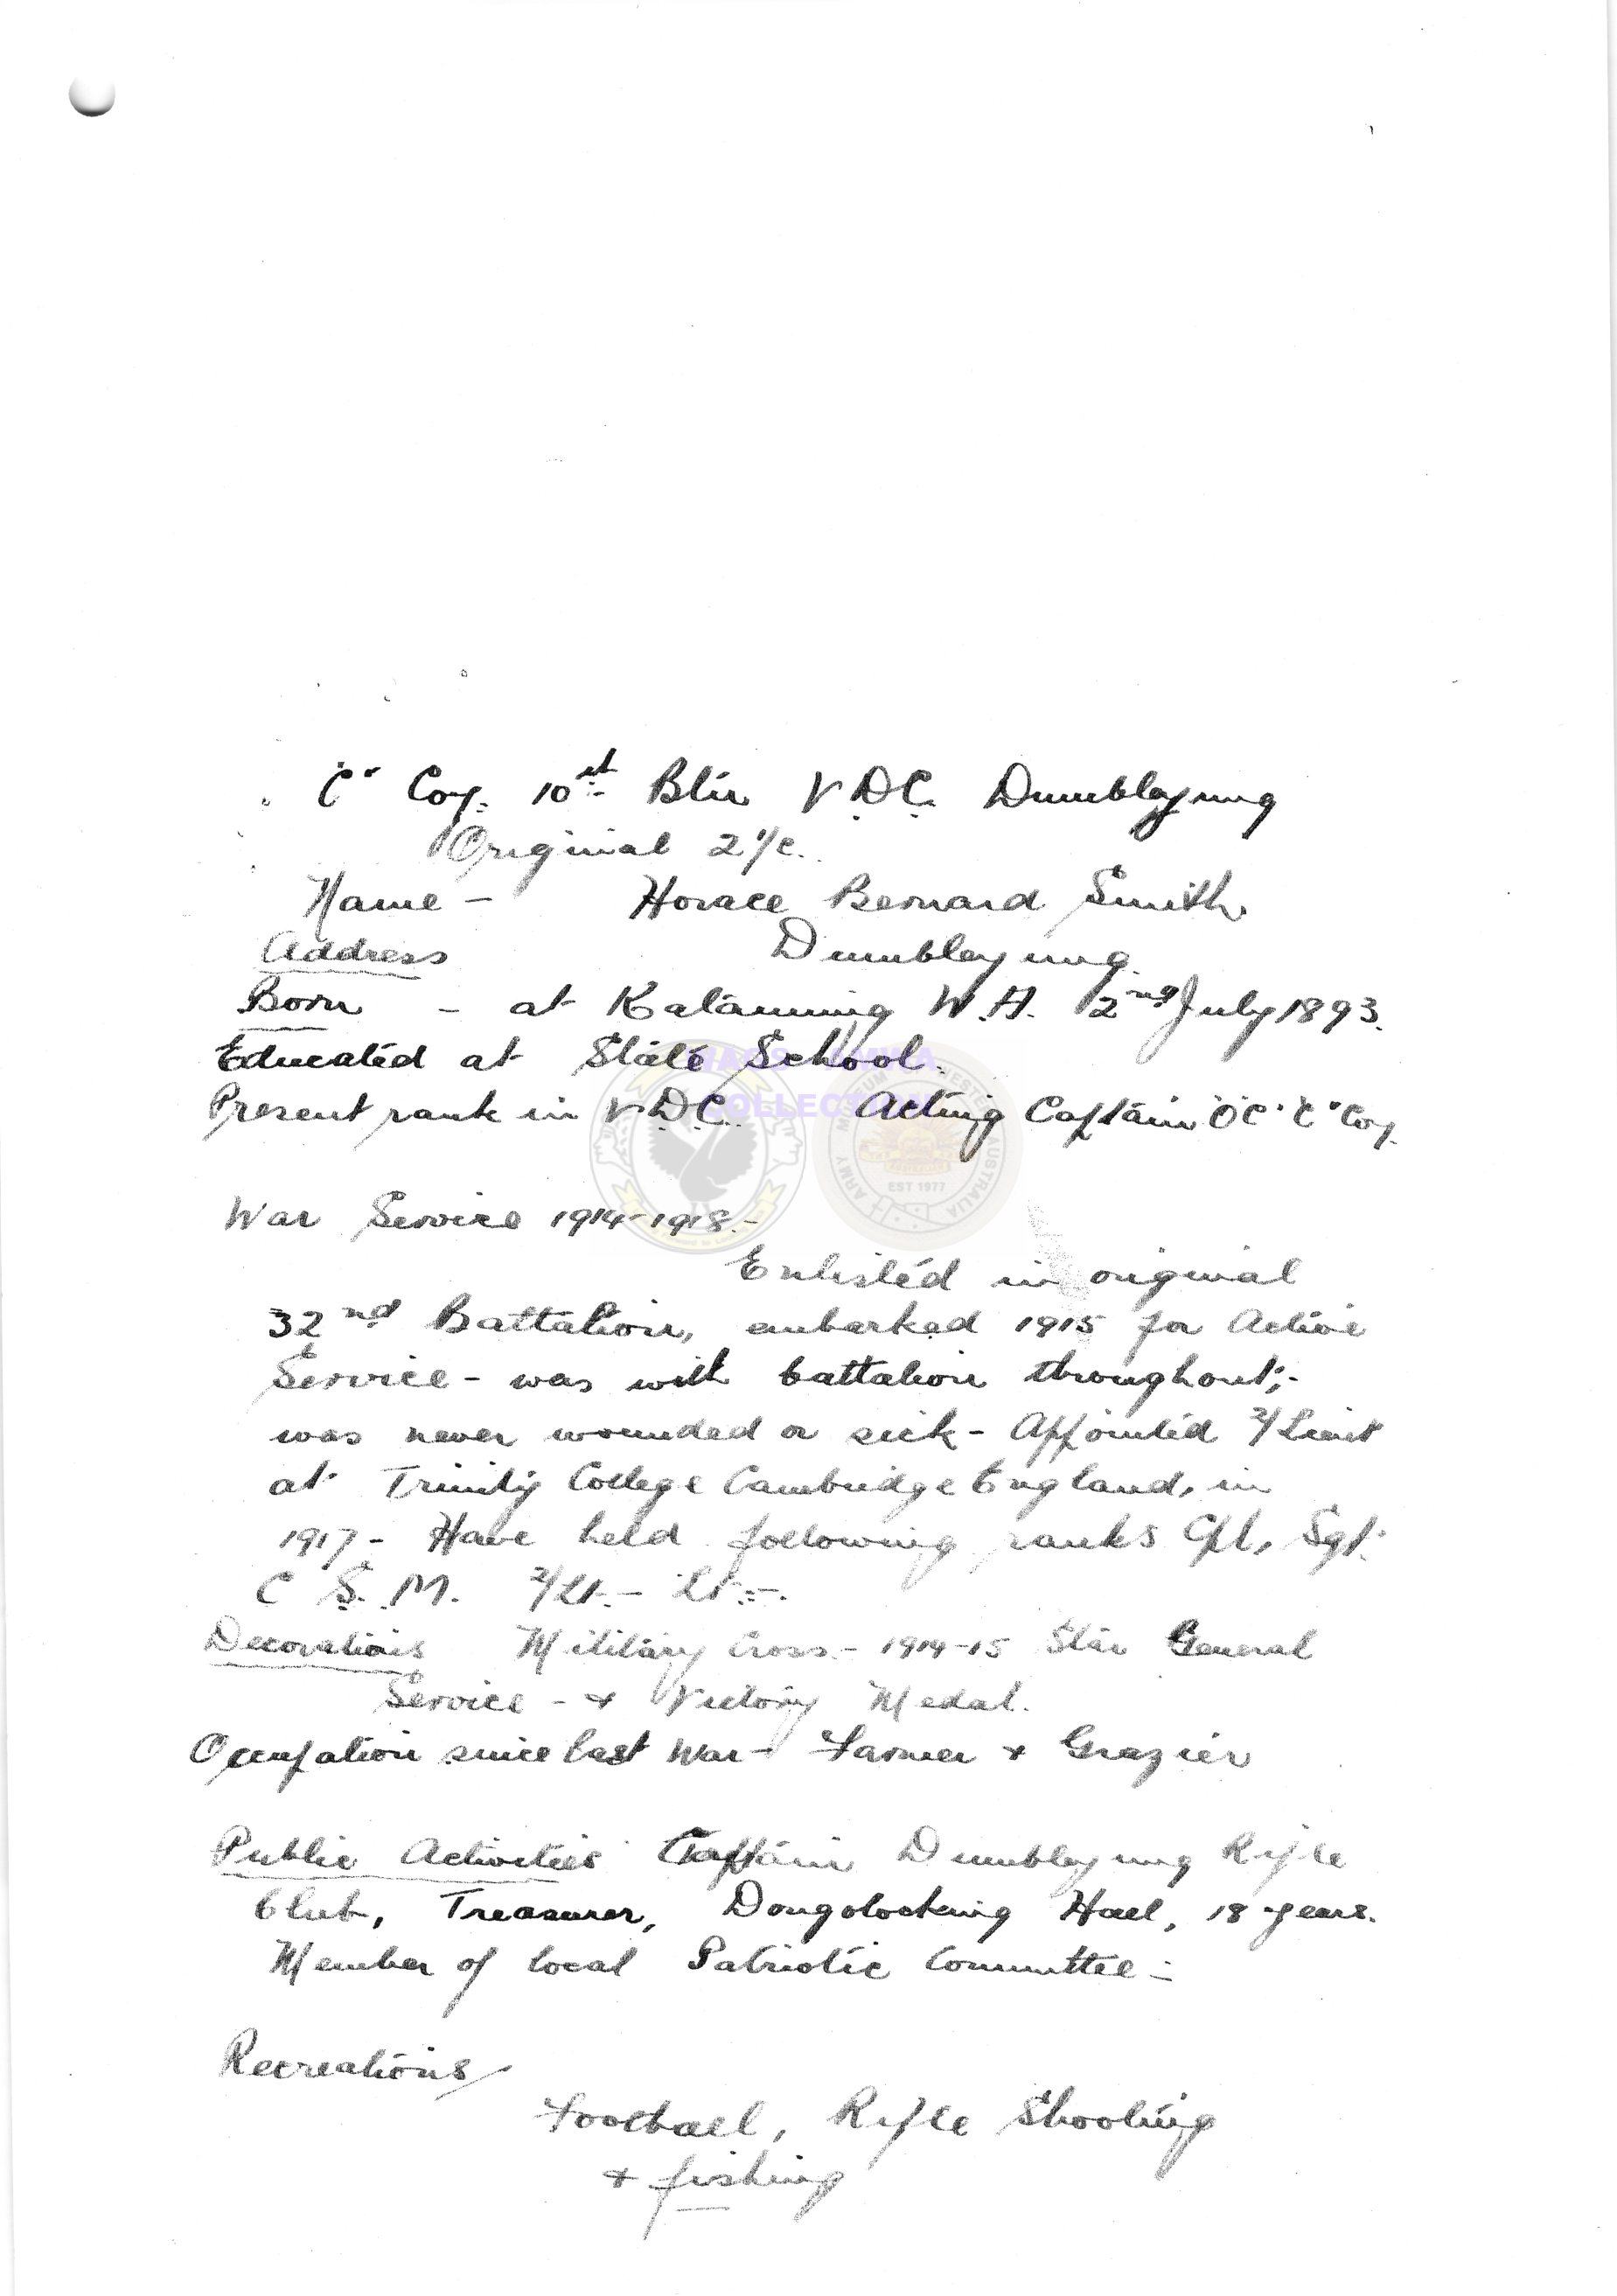 "C" Coy. 10st Btn V.D.C. Dumbleyung
Original 2 I/C.
Name - Horace Bernard Smith.
Address Dumbleyung.
Born - at Katanning W.A. 2nd July 1893.
Educated at State School.
Present rank in V.D.C. Acting Captain OC "C" Coy.
War Service 1914-1918.-
Enlisted in original
32nd Battalion, embarked 1915 for Active
Service - was with battalion throughout;-
was never wounded or sick - Appointed 2/Lieut
at Trinity College Cambridge England, in
1917 - Have held following ranks Cpl, Sgt.
C.S.M. 2/Lt. - Lt. -.
Decorations Military Cross - 1914-15 Star General
Service - & Victory Medal.
Occupation since last War - Farmer & Grazier
Public Activities Captain Dumbleyung Rifle
Club, Treasurer, Dongolocking Hall, 18 years.
Member of local Patriotic Committee -
Recreations/
Football, Rifle Shooting
& fishing
COLLECTION
ARMY MUSEUM WESTERN AUSTRALIA
EST 1977